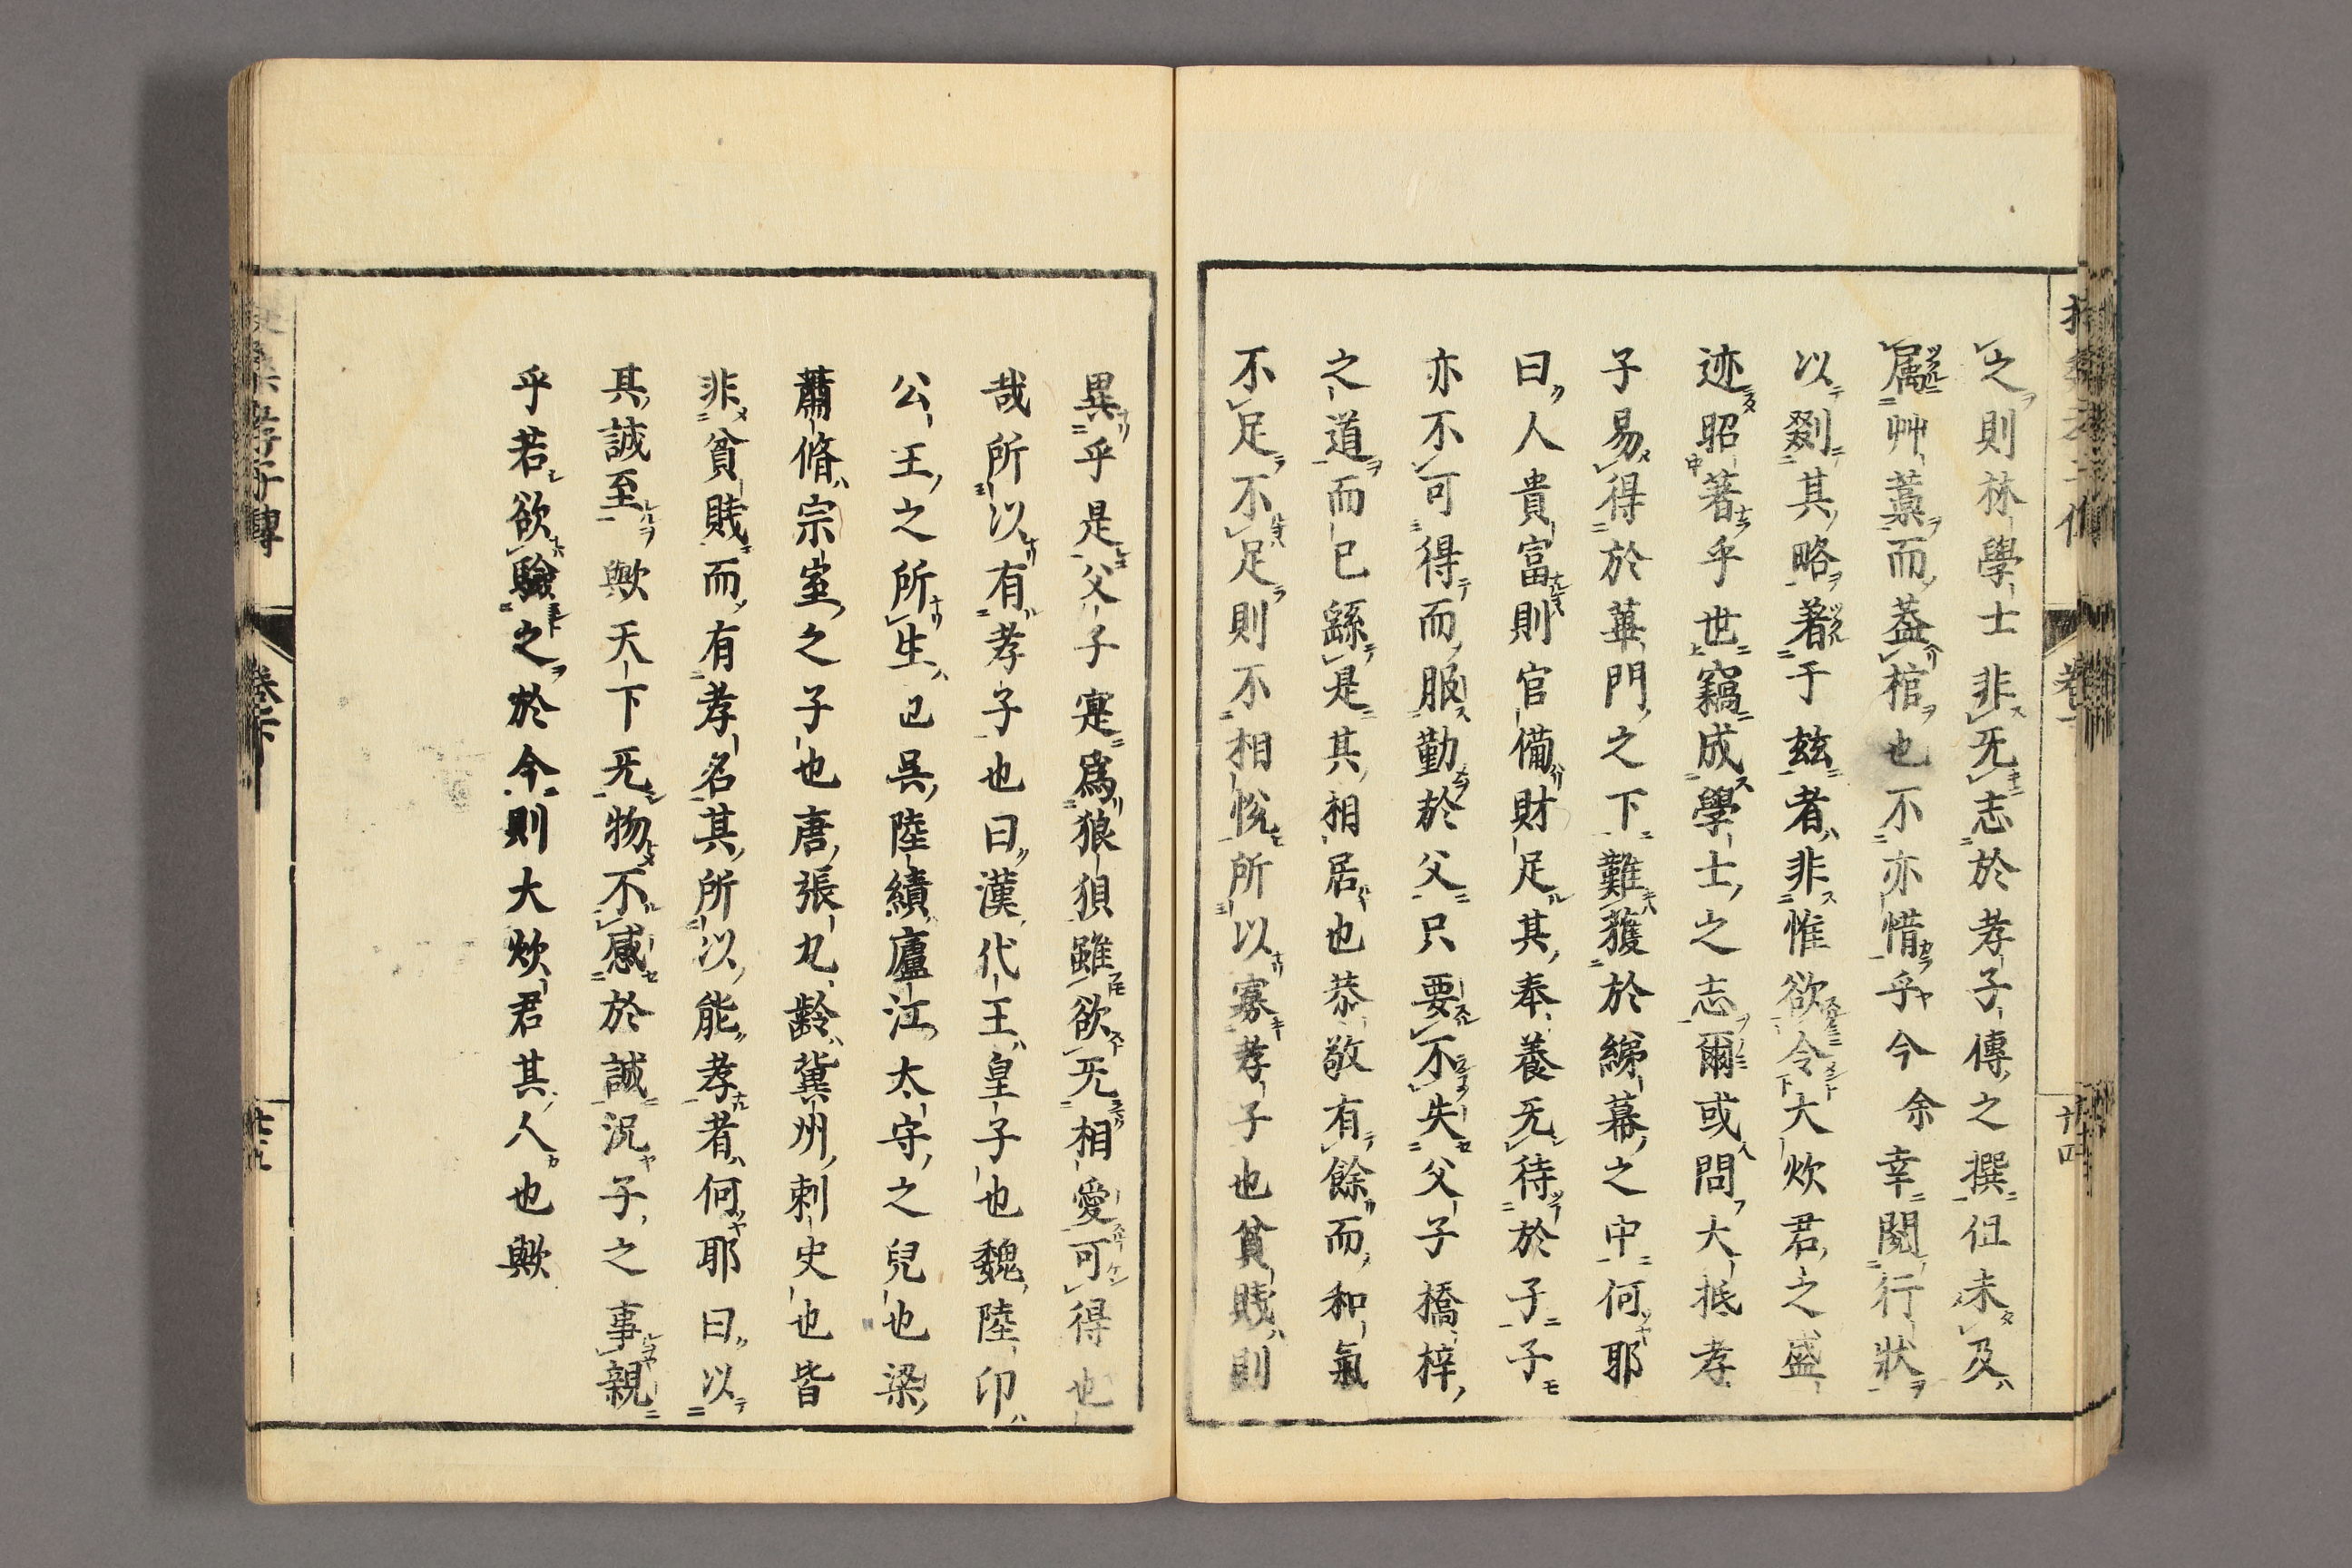 之則林學士非无志於孝子傳之撰但未及
属艸藁而葢棺也不亦惜乎今余幸閲行狀
以剟其略著于玆者非惟欲令大炊君之盛
迹昭著乎世竊成學士之志爾或問大抵孝
子易得於蓽門之下難獲於綈幕之中何耶
曰人貴富則官備財足其奉養无待於子子
亦不可得而服勤於父只要不失父子橋梓
之道而已繇是其相居也恭敬有餘而和氣
不足不足則不相悅所以寡孝子也貧賤則
異乎是父子寔爲狼狽雖欲无相愛可得也
哉所以有孝子也曰漢代王皇子也魏陸印
公王之所生已吳陸績廬江太守之兒也梁
蕭脩宗室之子也唐張九齡冀州刺史也皆
非貧賤而有孝名其所以能孝者何耶曰以
其誠至歟天下无物不感於誠況子之事親
乎若欲驗之於今則大炊君其人也歟
孝子傳